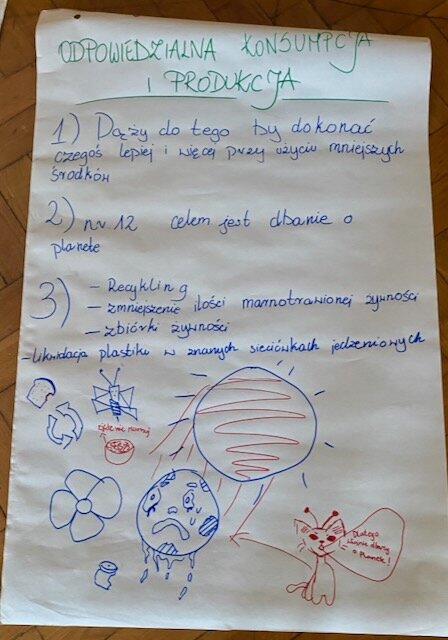 ODPOWIEDZIALNA KONSUMPCJA
I PRODUKCJA
1) Dąży do tego by dokonać
czegoś lepiej i więcej przy użyciu mniejszych
środków
2) nr 12 celem jest dbanie o
planete
3) – Recykling
– zmniejszenie ilości marnotrawionej żywności
– zbiórki żywności
– likwidacja plastiku w znanych sieciówkach jedzeniowych
Dlatego
dbamy
o
Planetę!